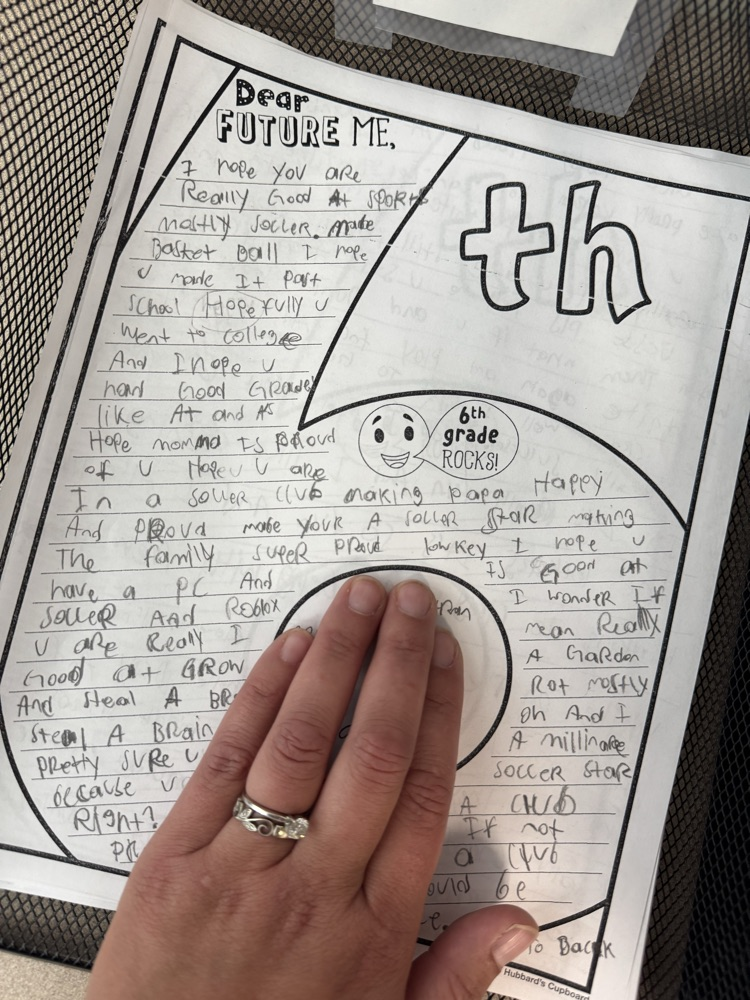 Dear
FUTURE ME,
th
6th
grade
ROCKS!
I hope you are
Really Good At sports
mostly soccer. 
Basket Ball I hope
U made It past
school Hopefully U
Went to college
And I hope U
had Good Grades
like A+ and A's
Hope momma Is proud
of U Hope U are
In a soccer club making papa Happy
And proud make your A soccer star making
The family super proud lowkey I hope U
have a PC And Is Good at
soccer And Roblox I wonder If
U are Really I mean Really
Good at GROW A Garden
And Steal A BR Rot mostly
Steal A Brain Oh And I
pretty sure U A millinare
because U soccer star
Right? A club
If not
a club
ould be
e.
To Back
Hubbard's Cupboard